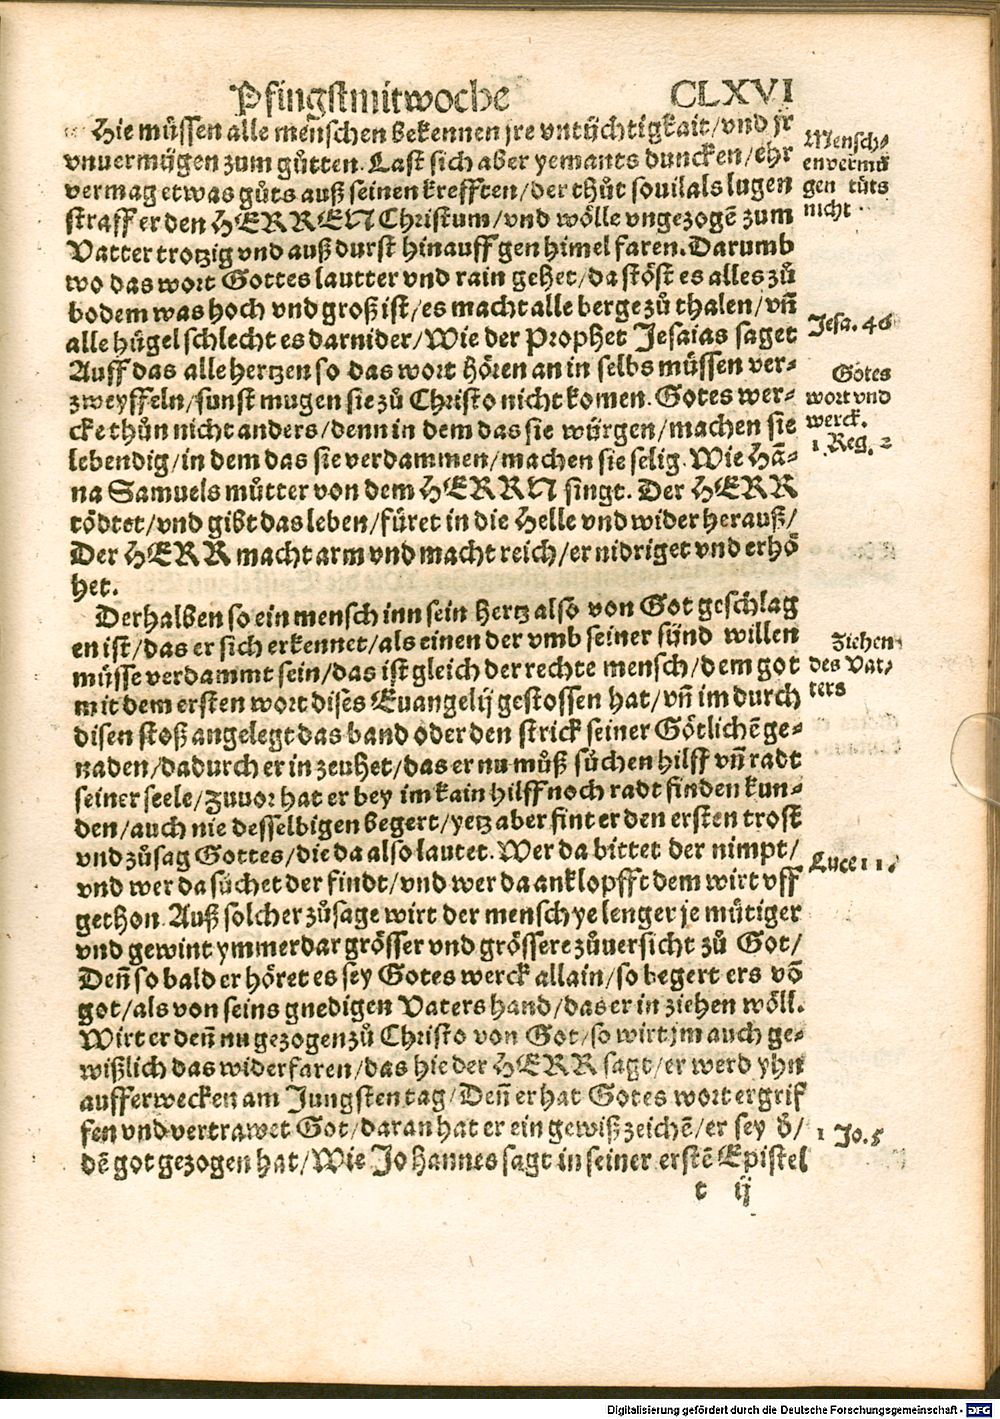 Pfingstmitwoche
CLXVI
Hie müssen alle menschen bekennen jre vntüchtigkait/vnd jr
vnuermügen zum gůtten. Last sich aber yemants duncken/ehr
vermag etwas gůts auß seinen krefften/der thůt souil als lugen
straff er den HERREN Christum/vnd wölle vngezogē zum
Vatter trotzig vnd auß durst hinauff gen himel faren. Darumb
wo das wort Gottes lautter vnd rain gehet/da stöst es alles zů
bodem was hoch vnd groß ist/es macht alle berge zů thalen/vñ
alle hügel schlecht es darnider/Wie der Prophet Jesaias saget
Auff das alle hertzen so das wort hören an in selbs müssen ver-
zweyffeln/sunst mugen sie zů Christo nicht komen. Gotes wer-
cke thůn nicht anders/denn in dem das sie würgen/machen sie
lebendig/in dem das sie verdammen/machen sie selig. Wie Hā-
na Samuels mütter von dem HERRN singt. Der HERR
tödtet/vnd gibt das leben/füret in die Helle vnd wider herauß/
Der HERR macht arm vnd macht reich/er nidriget vnd erhö
het.
Derhalben so ein mensch inn sein hertz also von Got geschlag
en ist/das er sich erkennet/als einen der vmb seiner sünd willen
müsse verdammt sein/das ist gleich der rechte mensch/dem got
mit dem ersten wort dises Euangelij gestossen hat/vñ im durch
disen stoß angelegt das band oder den strick seiner Götlichē ge-
naden/dadurch er in zeuhet/das er nu můß sůchen hilff vñ radt
seiner seele/Zuuor hat er bey im kain hilff noch radt finden kun-
den/auch nie desselbigen begert/yetz aber fint er den ersten trost
vnd zůsag Gottes/die da also lautet. Wer da bittet der nimpt/
vnd wer da sůchet der findt/vnd wer da anklopfft dem wirt vff
gethon. Auß solcher zůsage wirt der mensch ye lenger je mütiger
vnd gewint ymmerdar grösser vnd grössere zůuersicht zů Got/
Deñ so bald er höret es sey Gotes werck allain/so begert ers vō
got/als von seins gnedigen Vaters hand/das er in ziehen wöll.
Wirt er deñ nu gezogen zů Christo von Got/so wirt jm auch ge-
wißlich das widerfaren/das hie der HERR sagt/er werd yhn
aufferwecken am Jungsten tag/Deñ er hat Gotes wort ergrif
fen vnd vertrawet Got/daran hat er ein gewiß zeichē/er sey d̓/
dē got gezogen hat/Wie Johannes sagt in seiner erstē Epistel
t ij
Mensch-
envermü
gen tüts
nicht.
Jesa. 46
Gotes
wort vnd
werck.
1. Reg. 2
Ziehen
des Vat-
ters
Luce 11.
1 Jo. 5
Digitalisierung gefördert durch die Deutsche Forschungsgemeinschaft - DFG